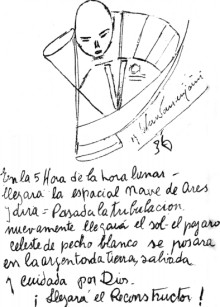 B Solari Parravicini
36
En la 5 Hora de la hora lunar -
llegará la espacial Nave de Ares
y dira - Pasada la tribulacion
nuevamente llegará el sol - el pajaro
celeste de pecho blanco se posara
en la argentada tierra, salvada
y cuidada por Dios.
¡ Llegara el Reconstructor !